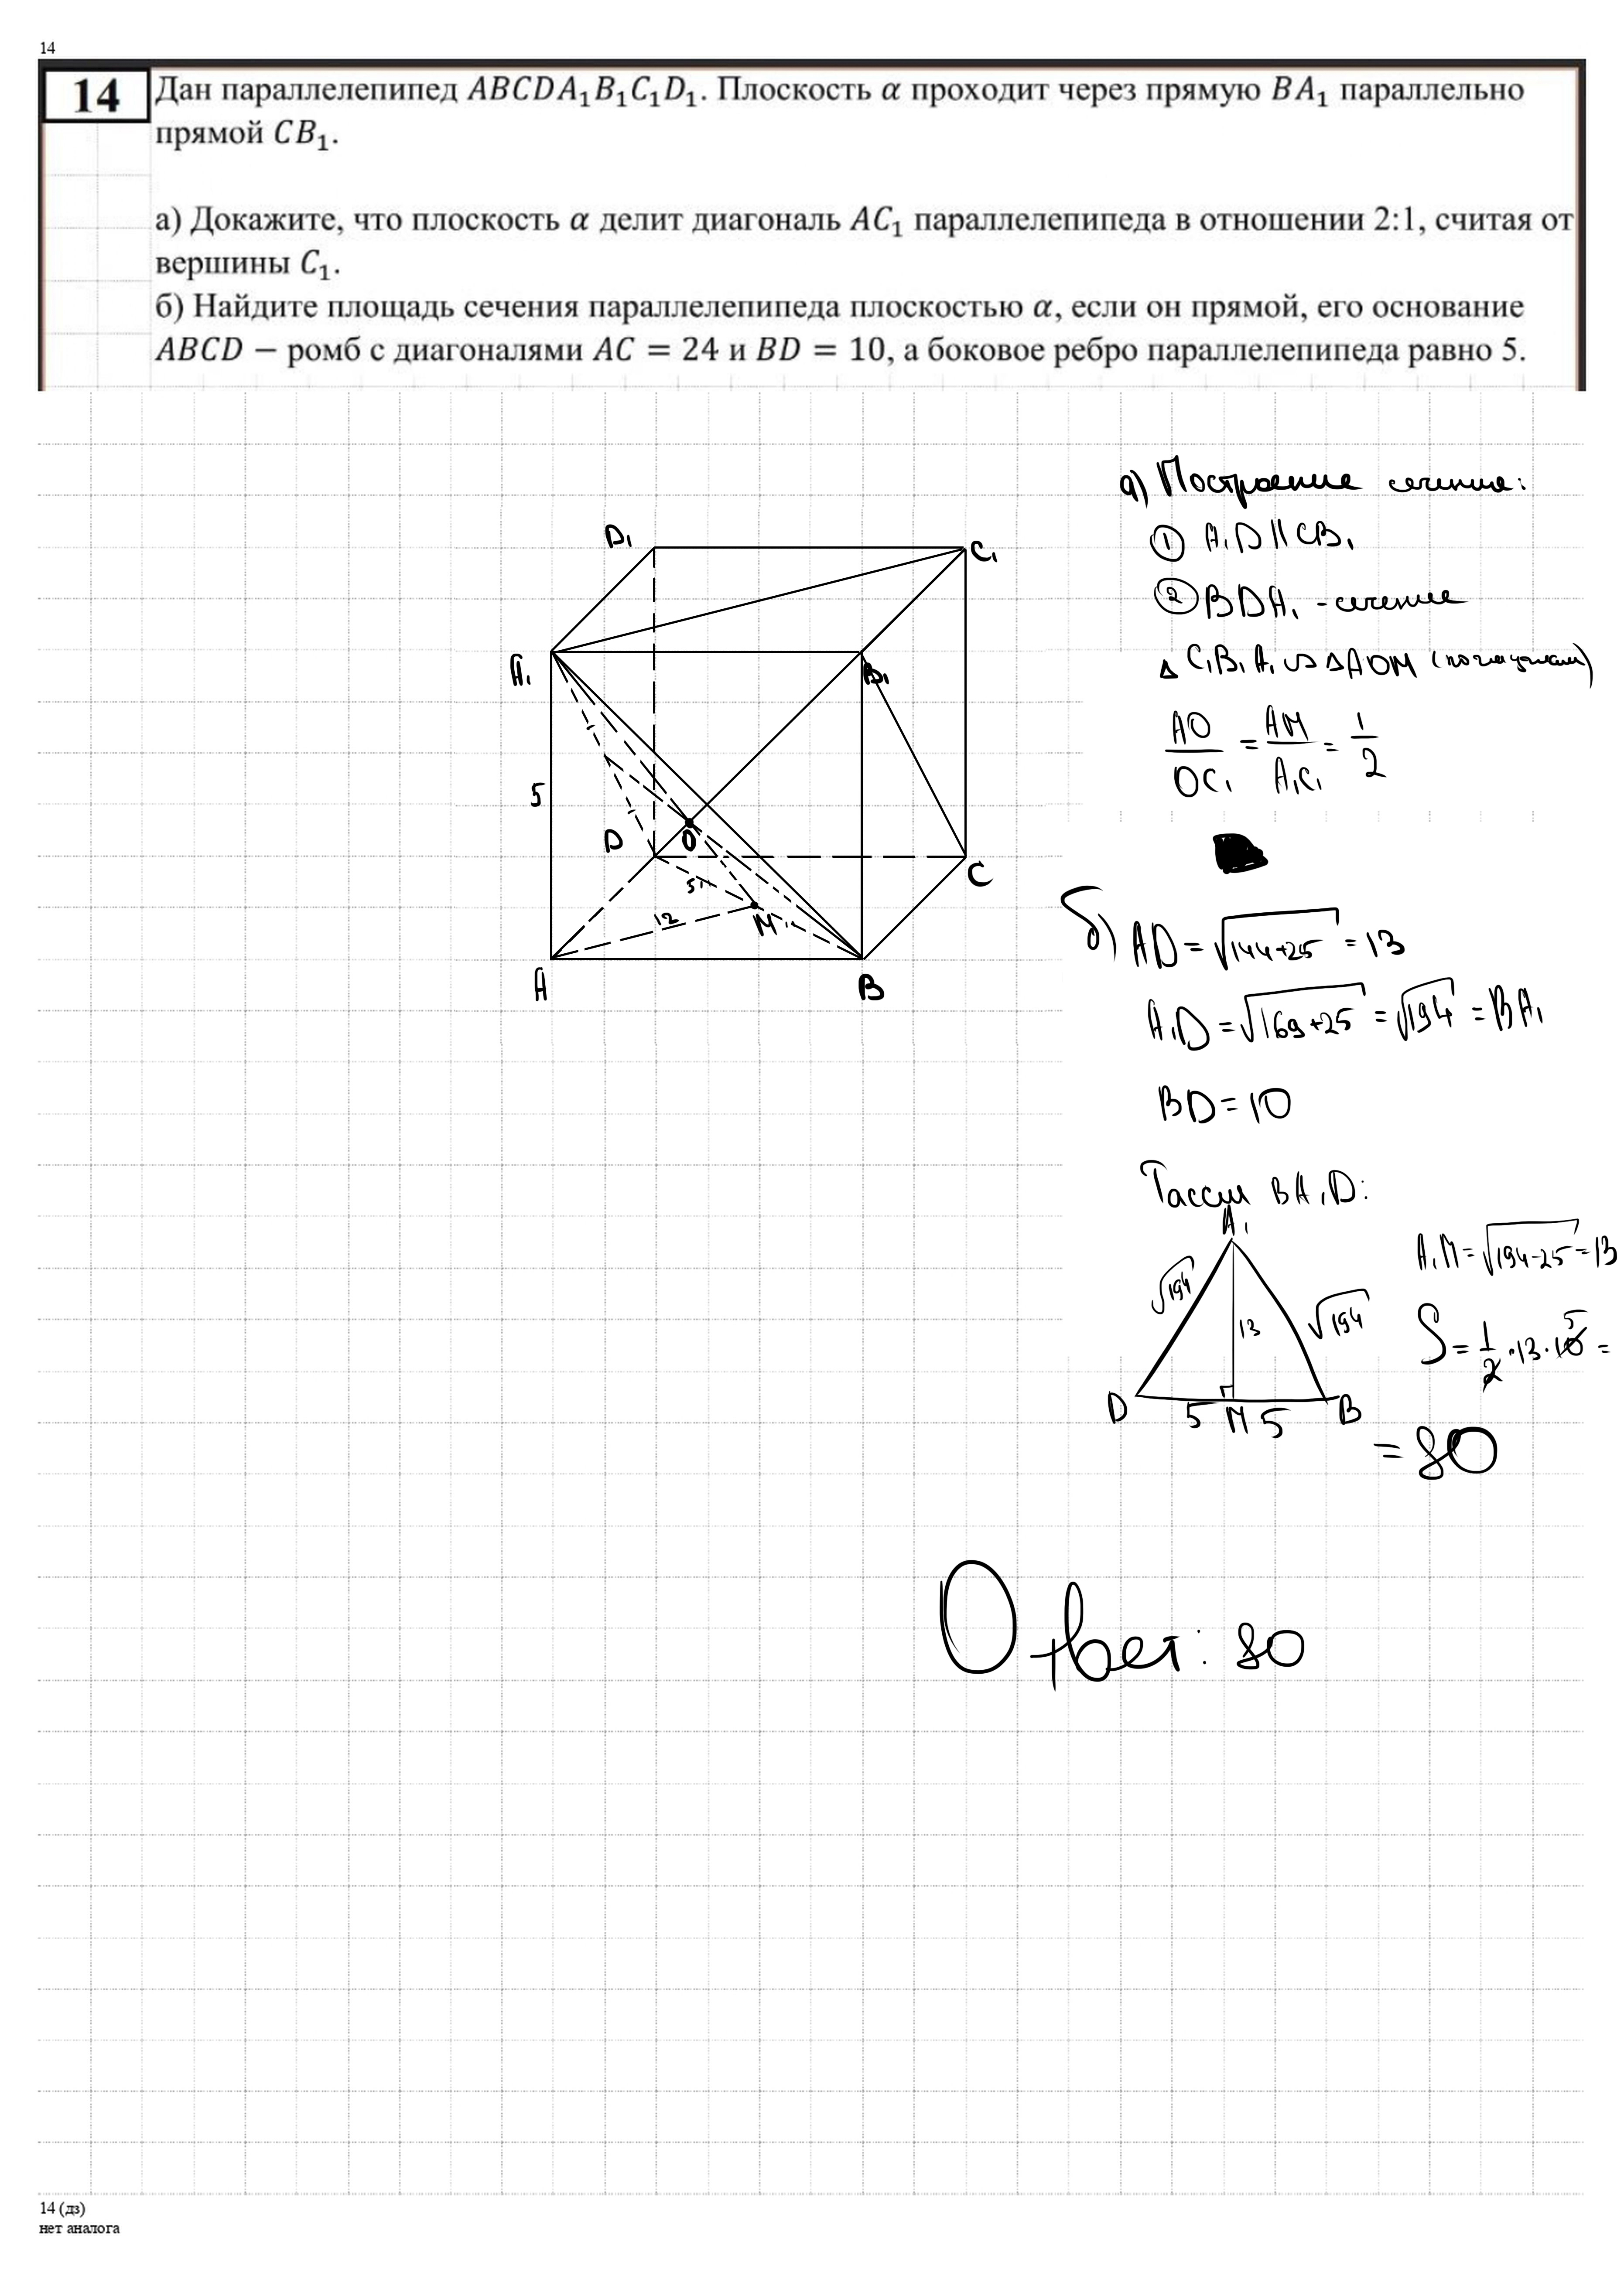 14
14
Дан параллелепипед ABCDA₁B₁C₁D₁. Плоскость α проходит через прямую BA₁ параллельно
прямой CB₁.
а) Докажите, что плоскость α делит диагональ AC₁ параллелепипеда в отношении 2:1, считая от
вершины C₁.
б) Найдите площадь сечения параллелепипеда плоскостью α, если он прямой, его основание
ABCD – ромб с диагоналями AC = 24 и BD = 10, а боковое ребро параллелепипеда равно 5.
а) Построение сечения:
① A₁D || CB₁
② BDA₁ - сечение
△ C₁B₁A₁ ∽ △AOM
AO/OC₁ = AM/A₁C₁ = 1/2
D₁
C₁
A₁
B₁
5
D
O
C
5
12
M
A
B
б) AD = √144+25 = 13
A₁D = √169+25 = √194 = BA₁
BD = 10
BA₁D:
A₁
√194
√194
13
D
5 M 5
B
A₁M = √194-25 = 13
S = 1/2 · 13 · 10 =
5
= 80
Ответ: 80
14 (дз)
нет аналога